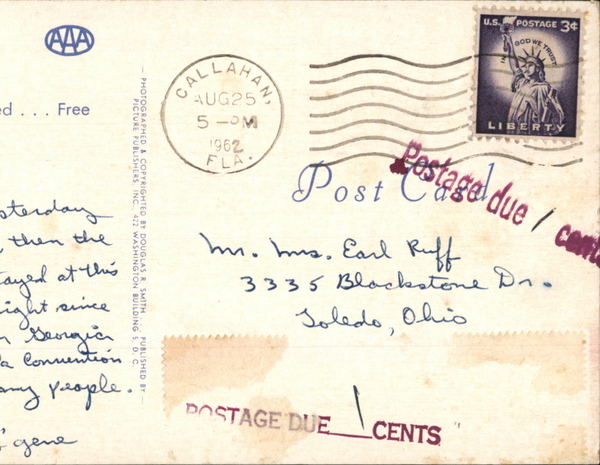 AAA
ed . . . Free
— PHOTOGRAPHED & COPYRIGHTED BY DOUGLAS R. SMITH . . . PUBLISHED BY —
PICTURE PUBLISHERS, INC. 422 WASHINGTON BUILDING S, D. C.
sterday
, then the
tayed at this
ight since
Georgia
a Convention
any people.
gene
CALLAHAN,
AUG 25
5 -PM
1962
FLA.
U.S. POSTAGE 3¢
IN GOD WE TRUST
LIBERTY
Post Card
Postage due 1 cents
Mr. Mrs. Earl Ruff
3335 Blackstone Dr.
Toledo, Ohio
POSTAGE DUE 1 CENTS